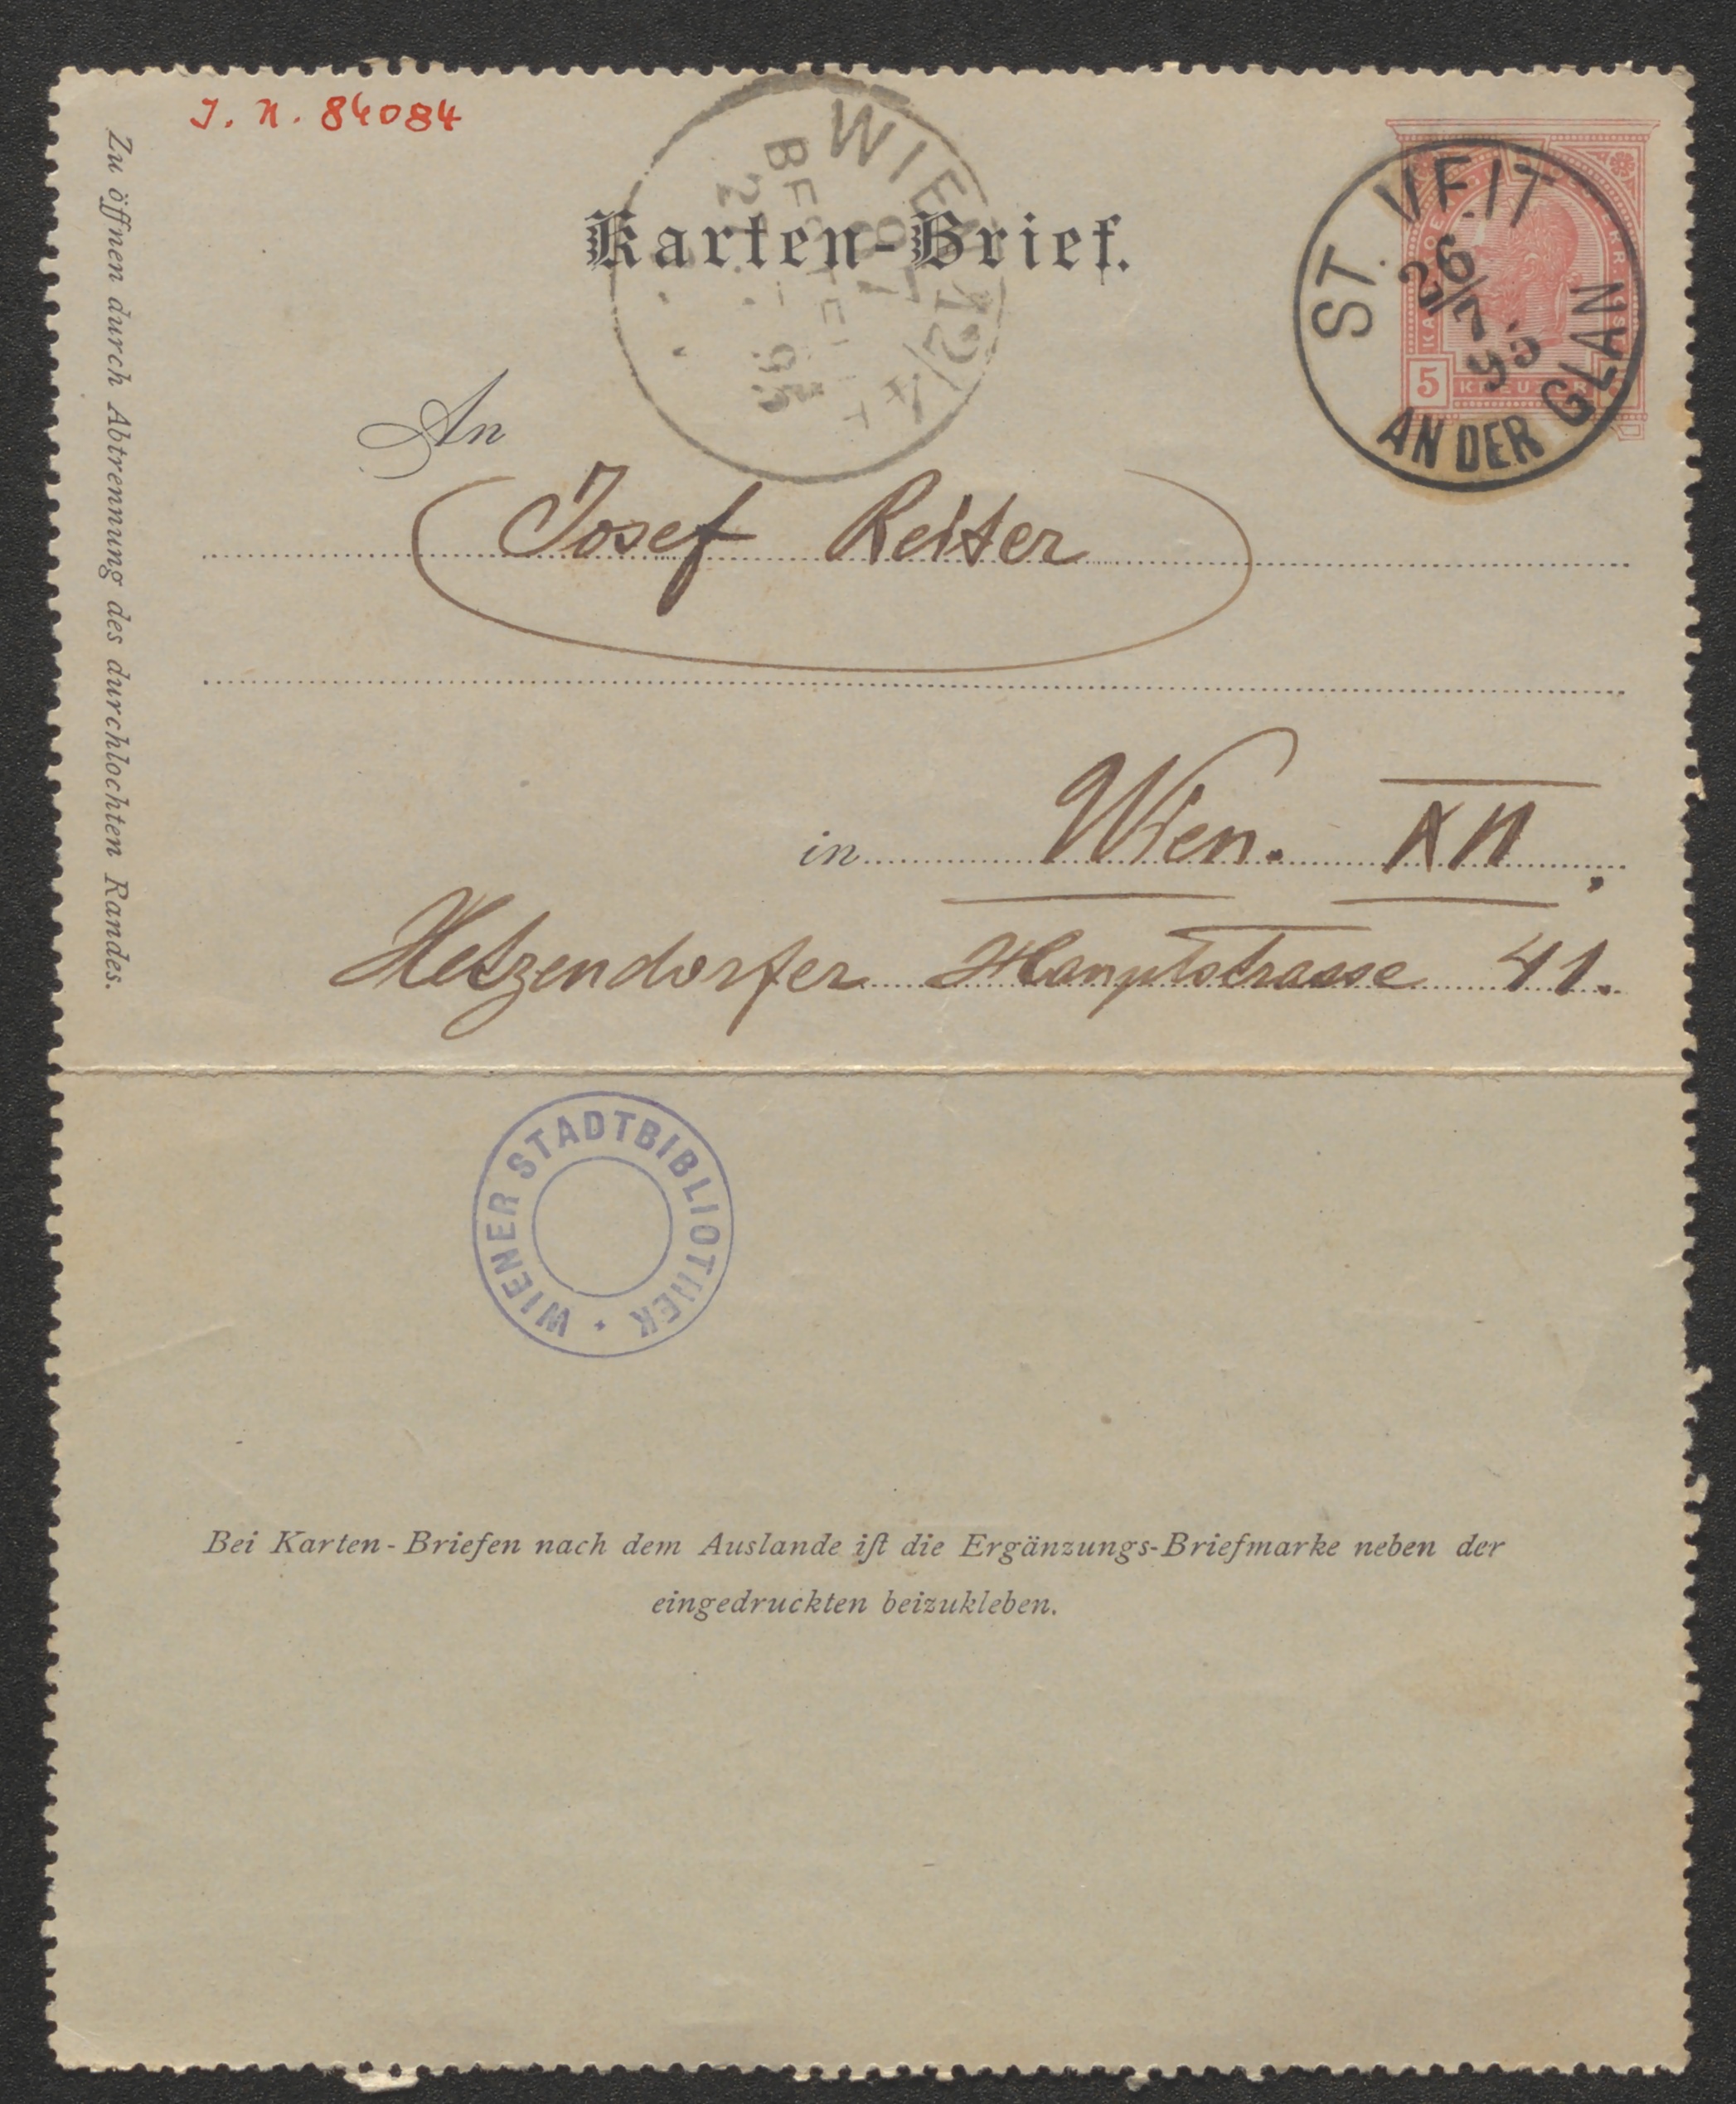 J. N. 84084
Zu öffnen durch Abtrennung des durchlochten Randes.
Karten-Brief.
WIEN 12/4
BESTELLT
95
ST. VEIT
AN DER GLAN
26/7 95
5 KREUZER
An
Josef Reiter
in Wien. XII,
Hetzendorfer Hauptstrasse 41.
WIENER STADTBIBLIOTHEK
Bei Karten-Briefen nach dem Auslande iſt die Ergänzungs-Briefmarke neben der
eingedruckten beizukleben.